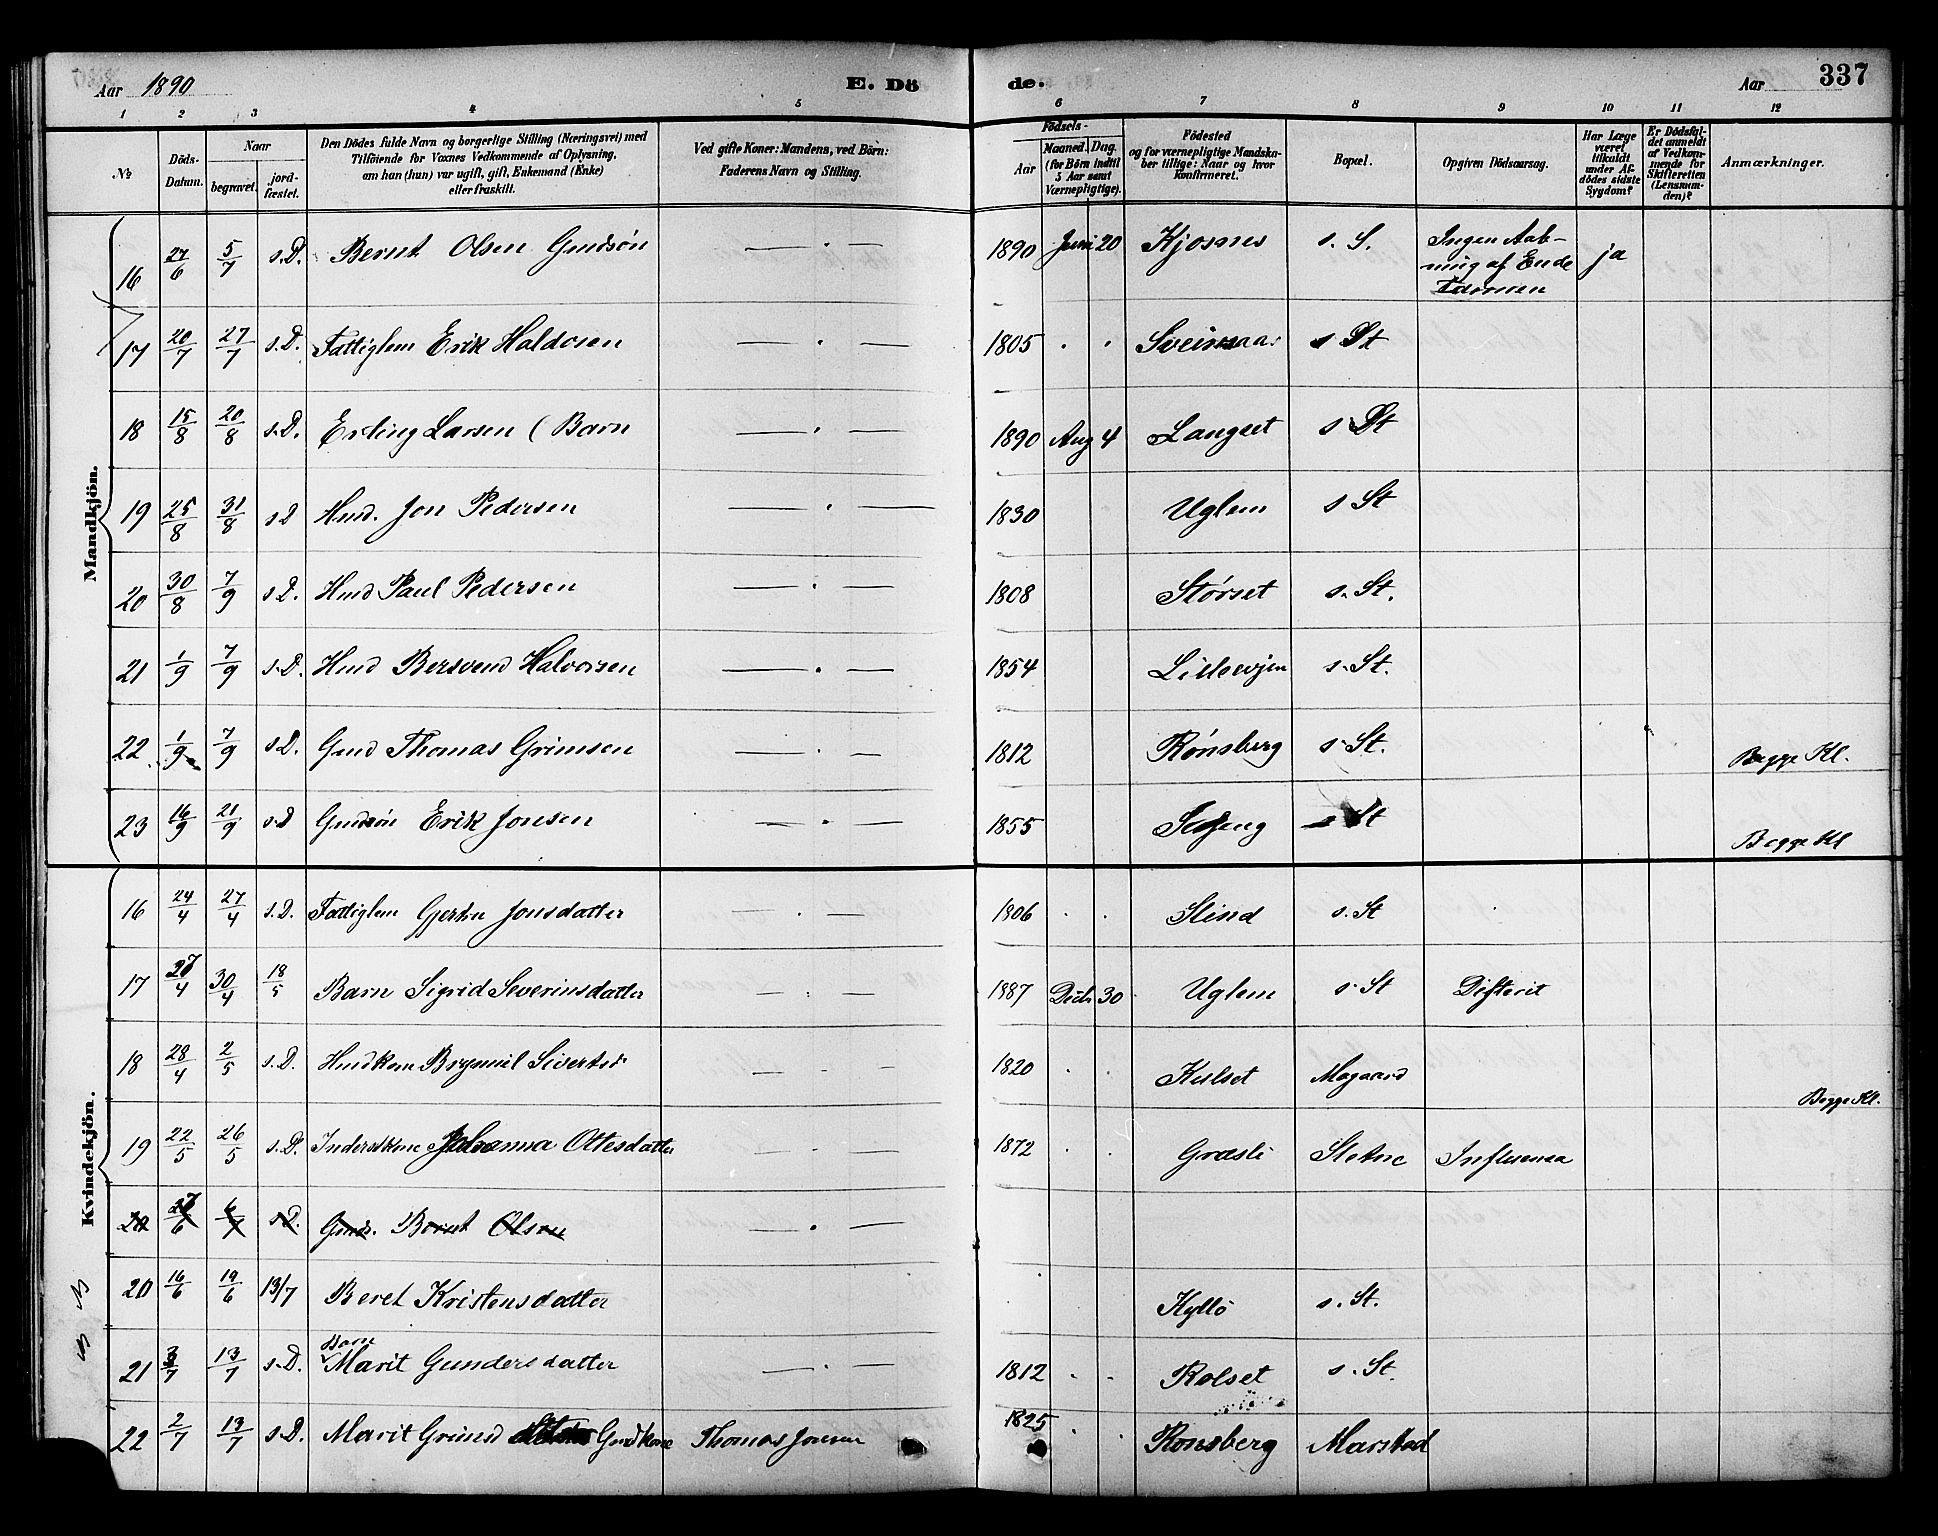 Aar 1890
E. Dö
de.
Aar
337
1 2 3 4 5 6 7 8 9 10 11 12
No
Döds-Datum.
Naar
begravet.
jord-fæstet.
Den Dödes fulde Navn og borgerlige Stilling (Næringsvei) med
Tilföiende for Voxnes Vedkommende af Oplysning,
om han (hun) var ugift, gift, Enkemand (Enke)
eller fraskilt.
Ved gifte Koner: Mandens, ved Börn:
Faderens Navn og Stilling.
Födsels-
Aar
Maaned. Dag.
(for Börn indtil
5 Aar samt
Værnepligtige).
Födested
og for værnepligtige Mandska-
ber tillige: Naar og hvor
konfirmeret.
Bopæl.
Opgiven Dödsaarsag.
Har Læge
været
tilkaldt
under Af-
dödes sidste
Sygdom?
Er Dödsfal-
det anmeldt
af Vedkom-
mende for
Skifteretten
(Lensman-
den)?
Anmærkninger.
Mandkjön.
16 27/6 5/7 s.D. Bernt Olsen Gmdsøn — . — 1890 Juni 20 Kjosnes s. S. Ingen Aab-
ning af Ende
Tarmen ja
17 20/7 27/7 s.D. Fattiglem Erik Haldosen — . — 1805 . . s St
18 15/8 20/8 s.D. Erling Larsen ( Barn — . — 1890 Aug 4 Langset s St
19 25/8 31/8 s D Hmd. Jon Pedersen — . — 1830 Uglem s St
20 30/8 7/9 s D. Hmd Paul Pedersen — . — 1808 Størset s. St.
21 1/9 7/9 s.D. Hmd Bersvend Halvorsen — . — 1854 Lillevjen s. St.
22 1/9 7/9 s.D. Gmd Thomas Grimsen — . — 1812 Rønsberg s. St. Begge Kl.
23 16/9 21/9 s.D Gmdsøn Erik Jonsen — . — 1855 s St Begge Kl
Kvindekjön.
16 24/4 27/4 s.D. Fattiglem Gjertru Jonsdatter — . — 1806 . . Slind s. St
17 27/4 30/4 18/5 Barn Sigrid Severinsdatter — . — 1887 Decbr 30 Uglem s. St Difterit
18 28/4 2/5 s.D. Hmdkone Brynnil Sivertsd. — . — 1820 . . Kulset Mogaard
Begge Kl.
19 22/5 26/5 s.D. Inderstkone Johanna Ottesdatter — . — 1872 . . Græsli Sletne Influensa
20 27/6 6/7 s.D. Gmds. Bernt Olsen — . —
20 16/6 19/6 13/7 Beret Kristensdatter Kyllö s. St.
21 3/7 13/7 s.D. Barn Marit Gundersdatter — . — 1812 . . Rolset s. St.
22 2/7 13/7 s.D. Marit Grimsd Gmdkone Thomas Jonsen 1825 . . Rønsberg Marstad